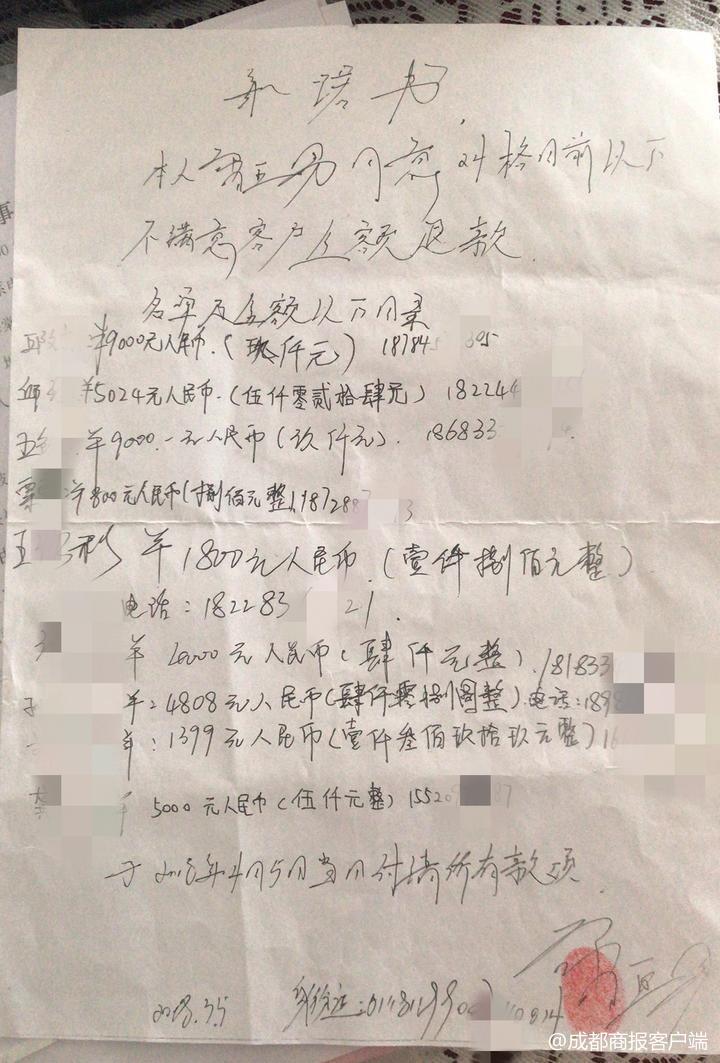 承诺书
本人 同意对格月前以下
不满意客户全额退款.
名单及金额以下目录
邱 羊9000元人民币.(玖仟元) 18784 395
羊5024元人民币.(伍仟零贰拾肆元) 182244
羊9000.一元人民币(玖仟元). 186833
羊800元人民币(捌佰元整)19872 3
王 彬 羊1800元人民币.(壹仟捌佰元整)
电话:182283 21.
羊 4000元人民币(肆仟元整).181833
羊:4808元人民币(肆仟零捌圆整).电话:1898
羊:1399元人民币(壹仟叁佰玖拾玖元整)
5000元人民币(伍仟元整) 1552 87
于2018年4月5日当日付清所有款项.
2018.3.5 身份证:
@成都商报客户端